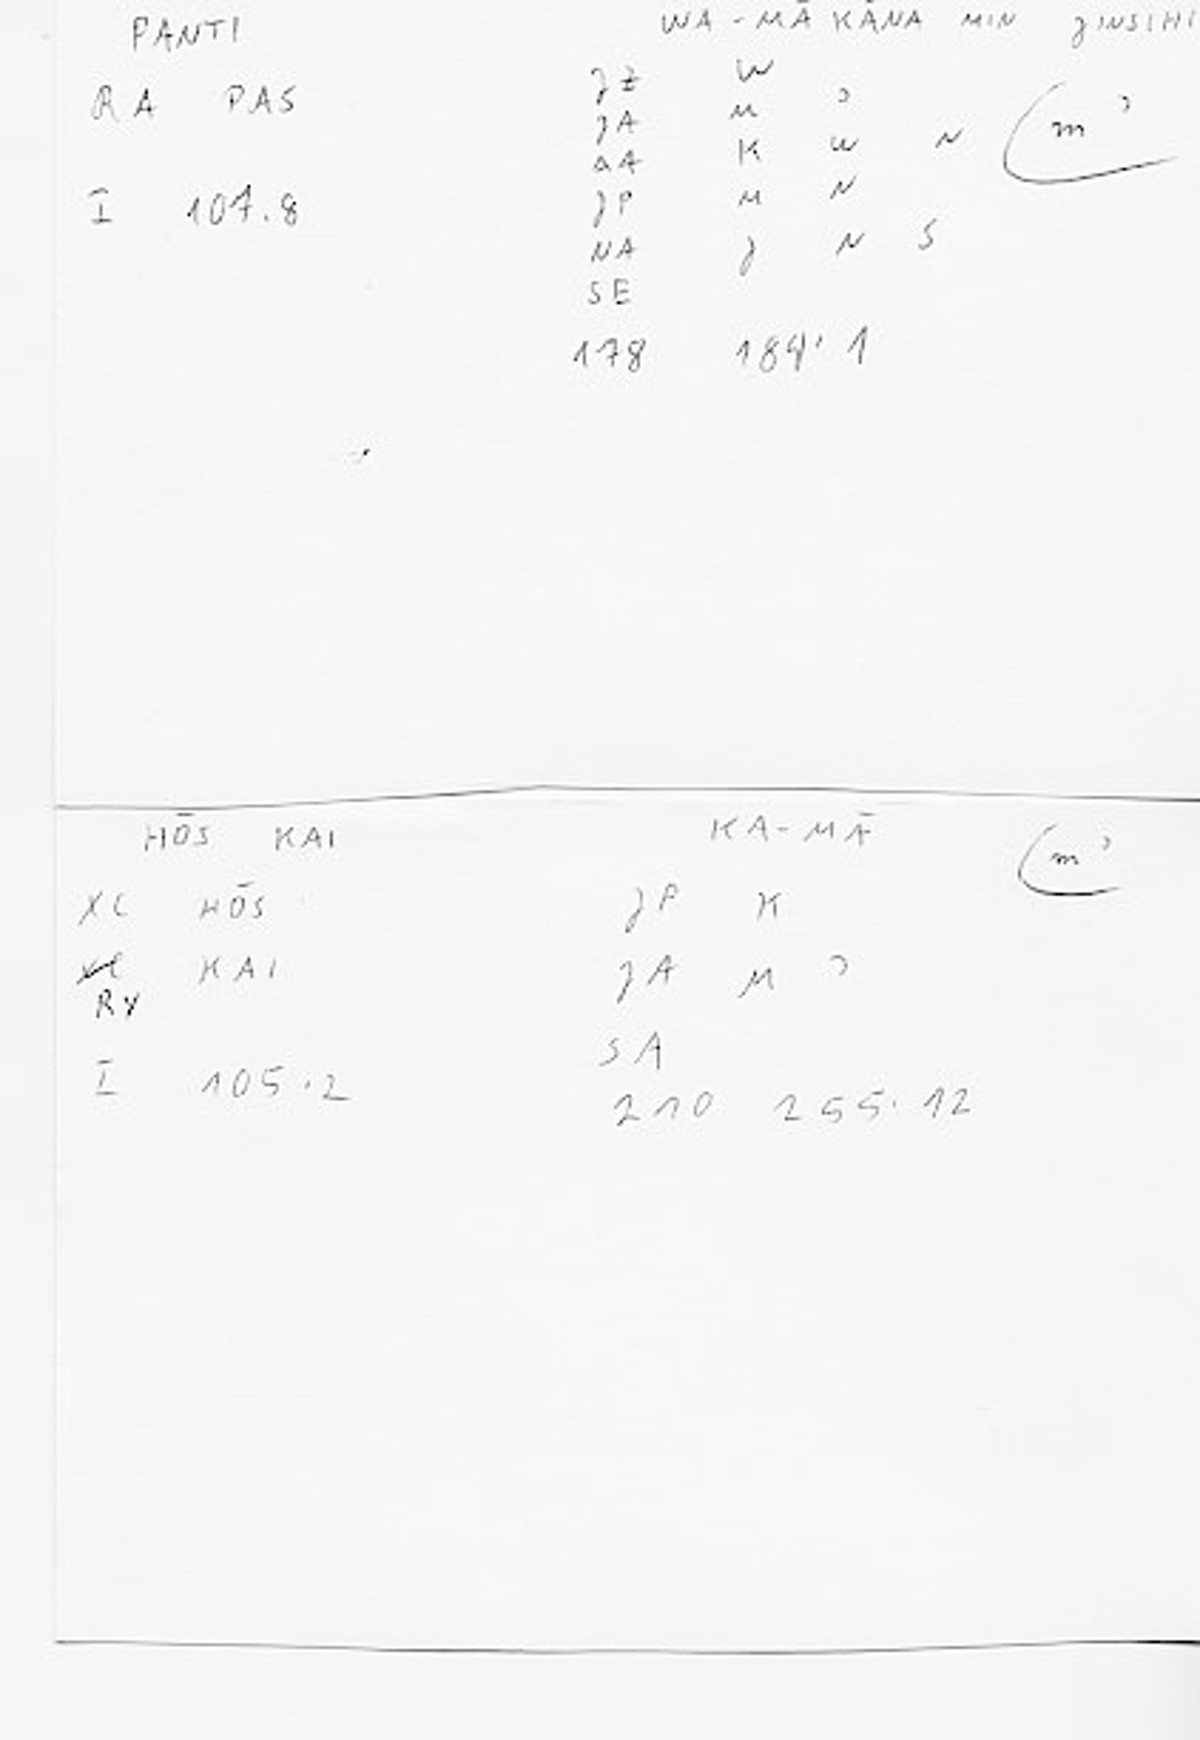 PANTI WA-MĀ KĀNA MIN JINSIHI
RA PAS JZ W
JA M ʾ
AA K W N (m ʾ
JP M N
I 107.8 NA J N S
SE
178 184, 1
HŌS KAI KA-MĀ
XC HŌS JP K (m ʾ
KAI JA M ʾ
RX
SA
I 105.2 210 255.12